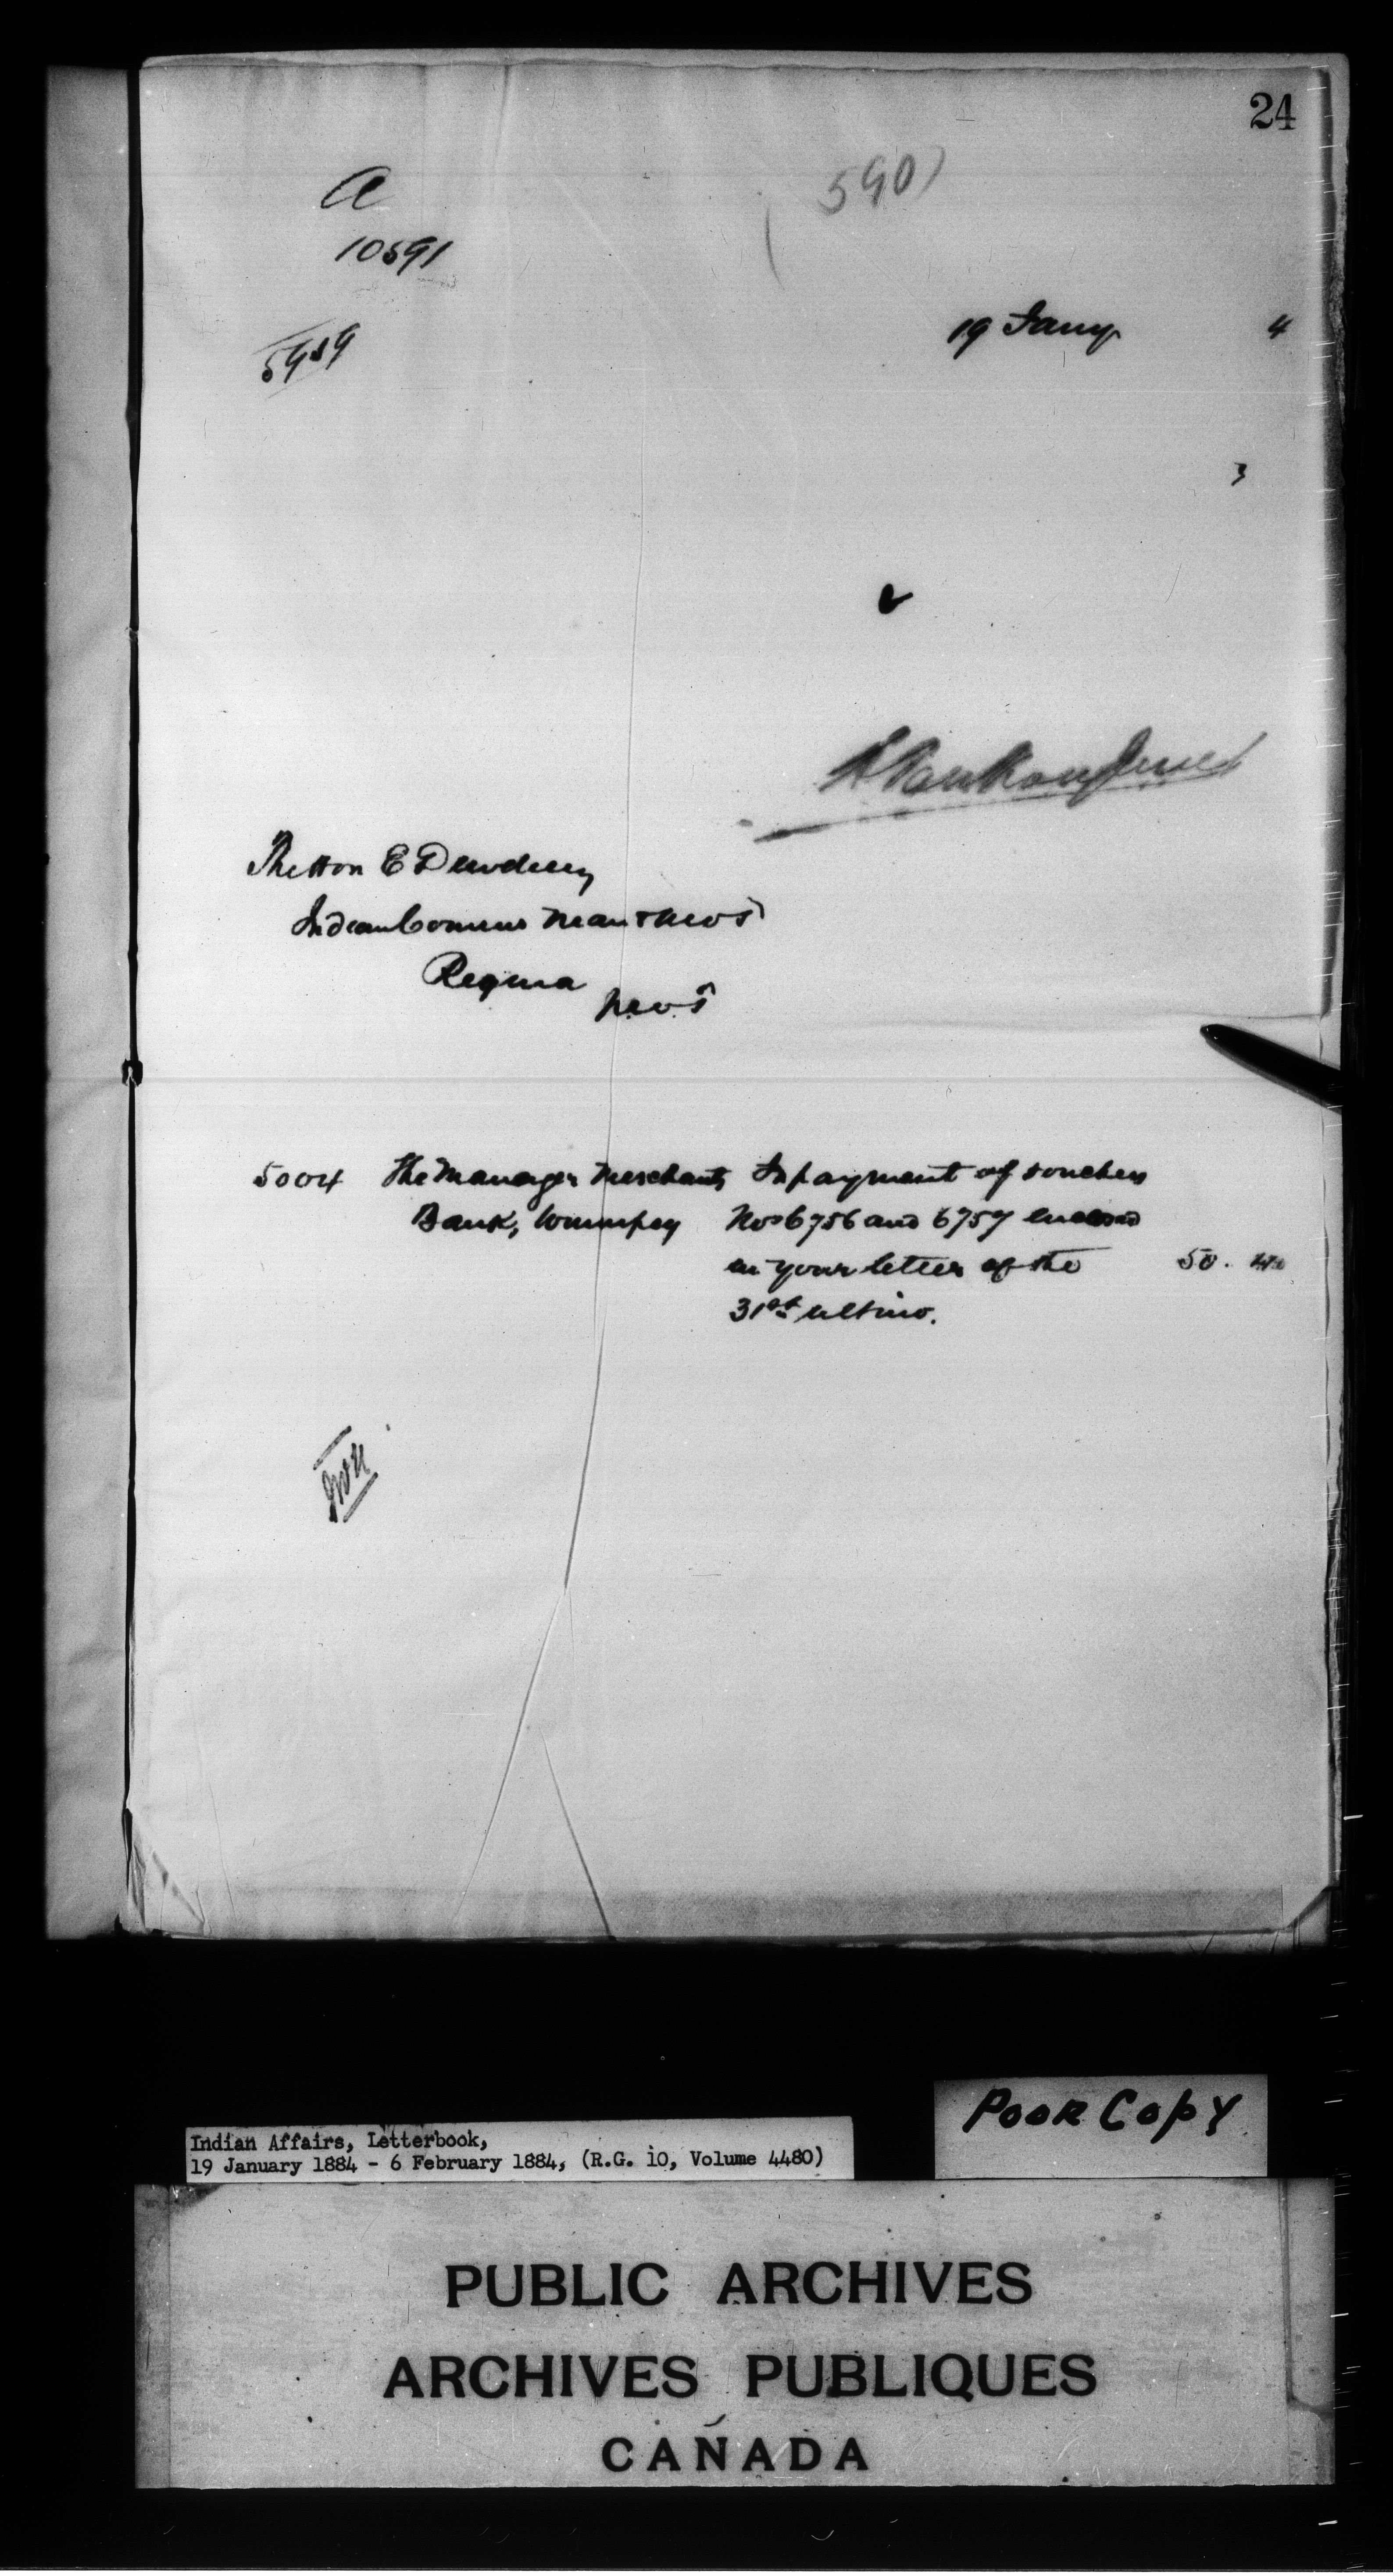 24
A
590)
10591
19 Jany 4
3
L Vankoughnet
The Hon E Dewdney
Indian Commr Man & NWT
Regina
NWT
5004 The Manager Merchants In payment of vouchers
Bank, Winnipeg Nos 6756 and 6757 enclosed
in your letter of the 50.
31st ultimo.
Poor Copy
Indian Affairs, Letterbook,
19 January 1884 - 6 February 1884, (R.G. 10, Volume 4480)
PUBLIC ARCHIVES
ARCHIVES PUBLIQUES
CANADA